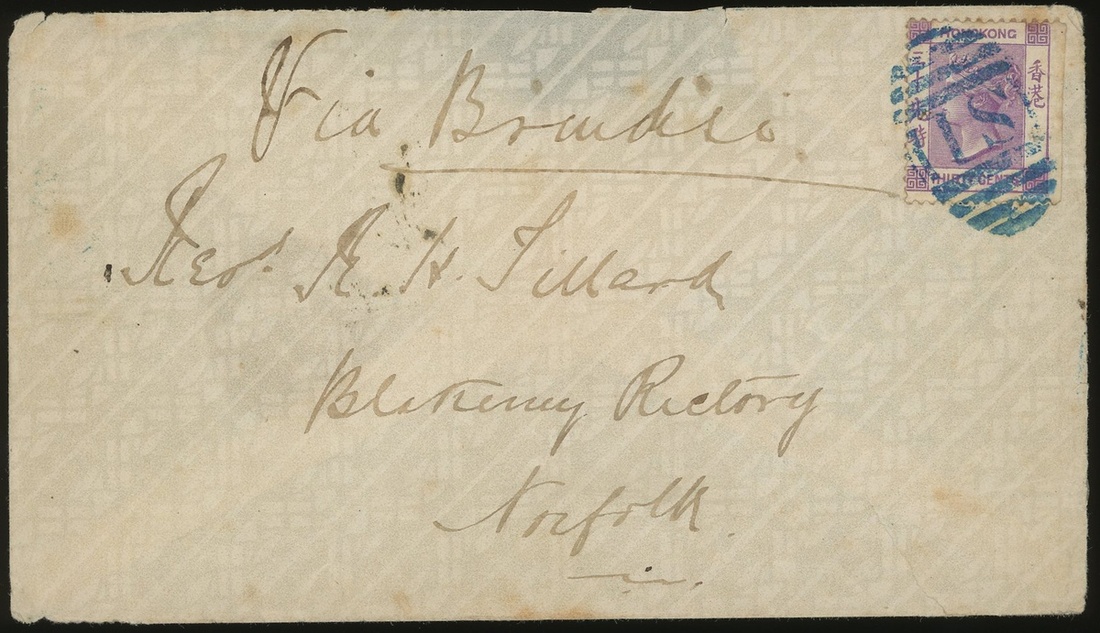 Via Brindisi
HONGKONG
香港
THIRTY CENTS
S1
Revd. R. H. Tillard
Blakeney Rectory
Norfolk.